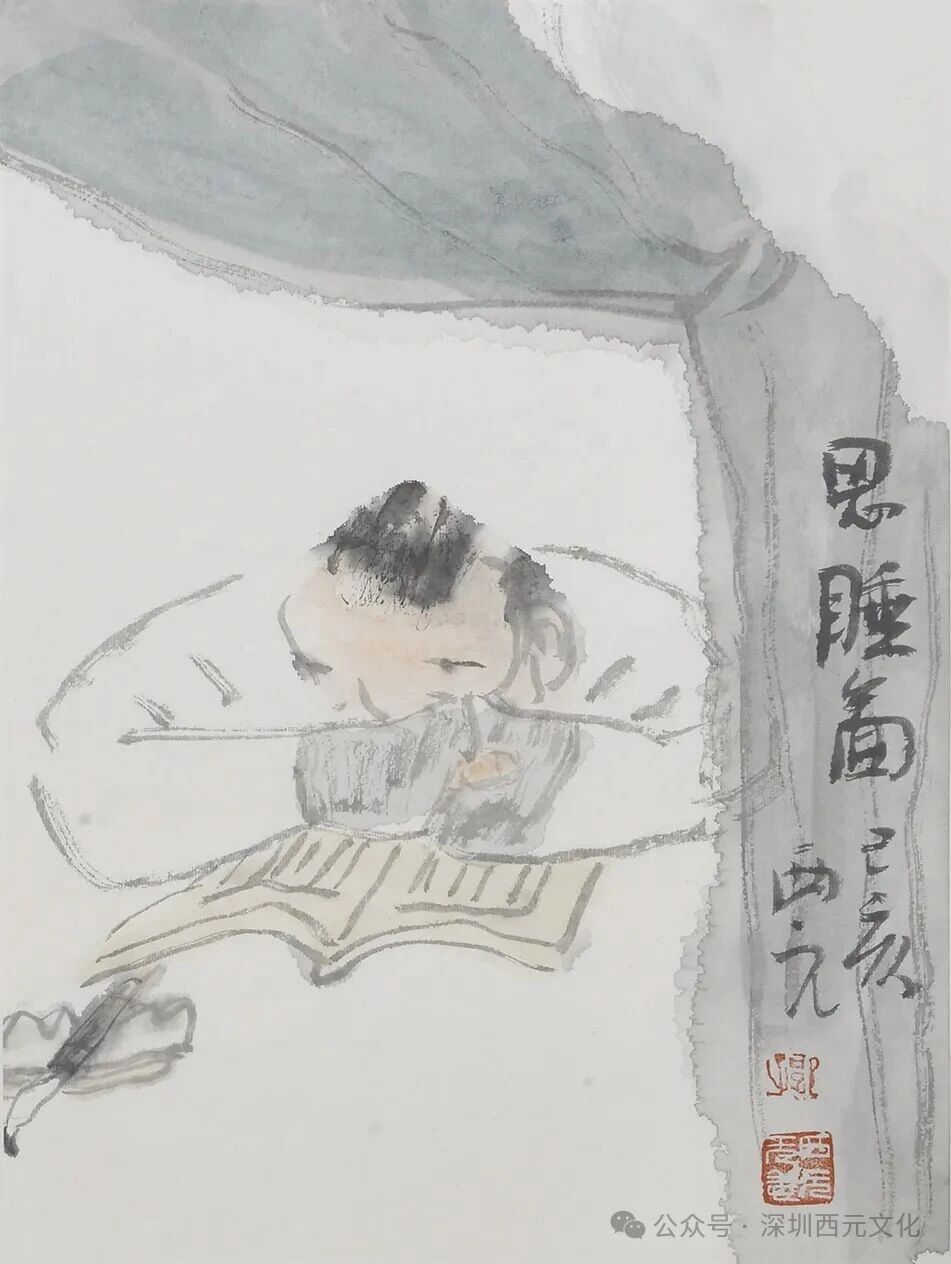 思睡图
己亥
西元
公众号·深圳西元文化